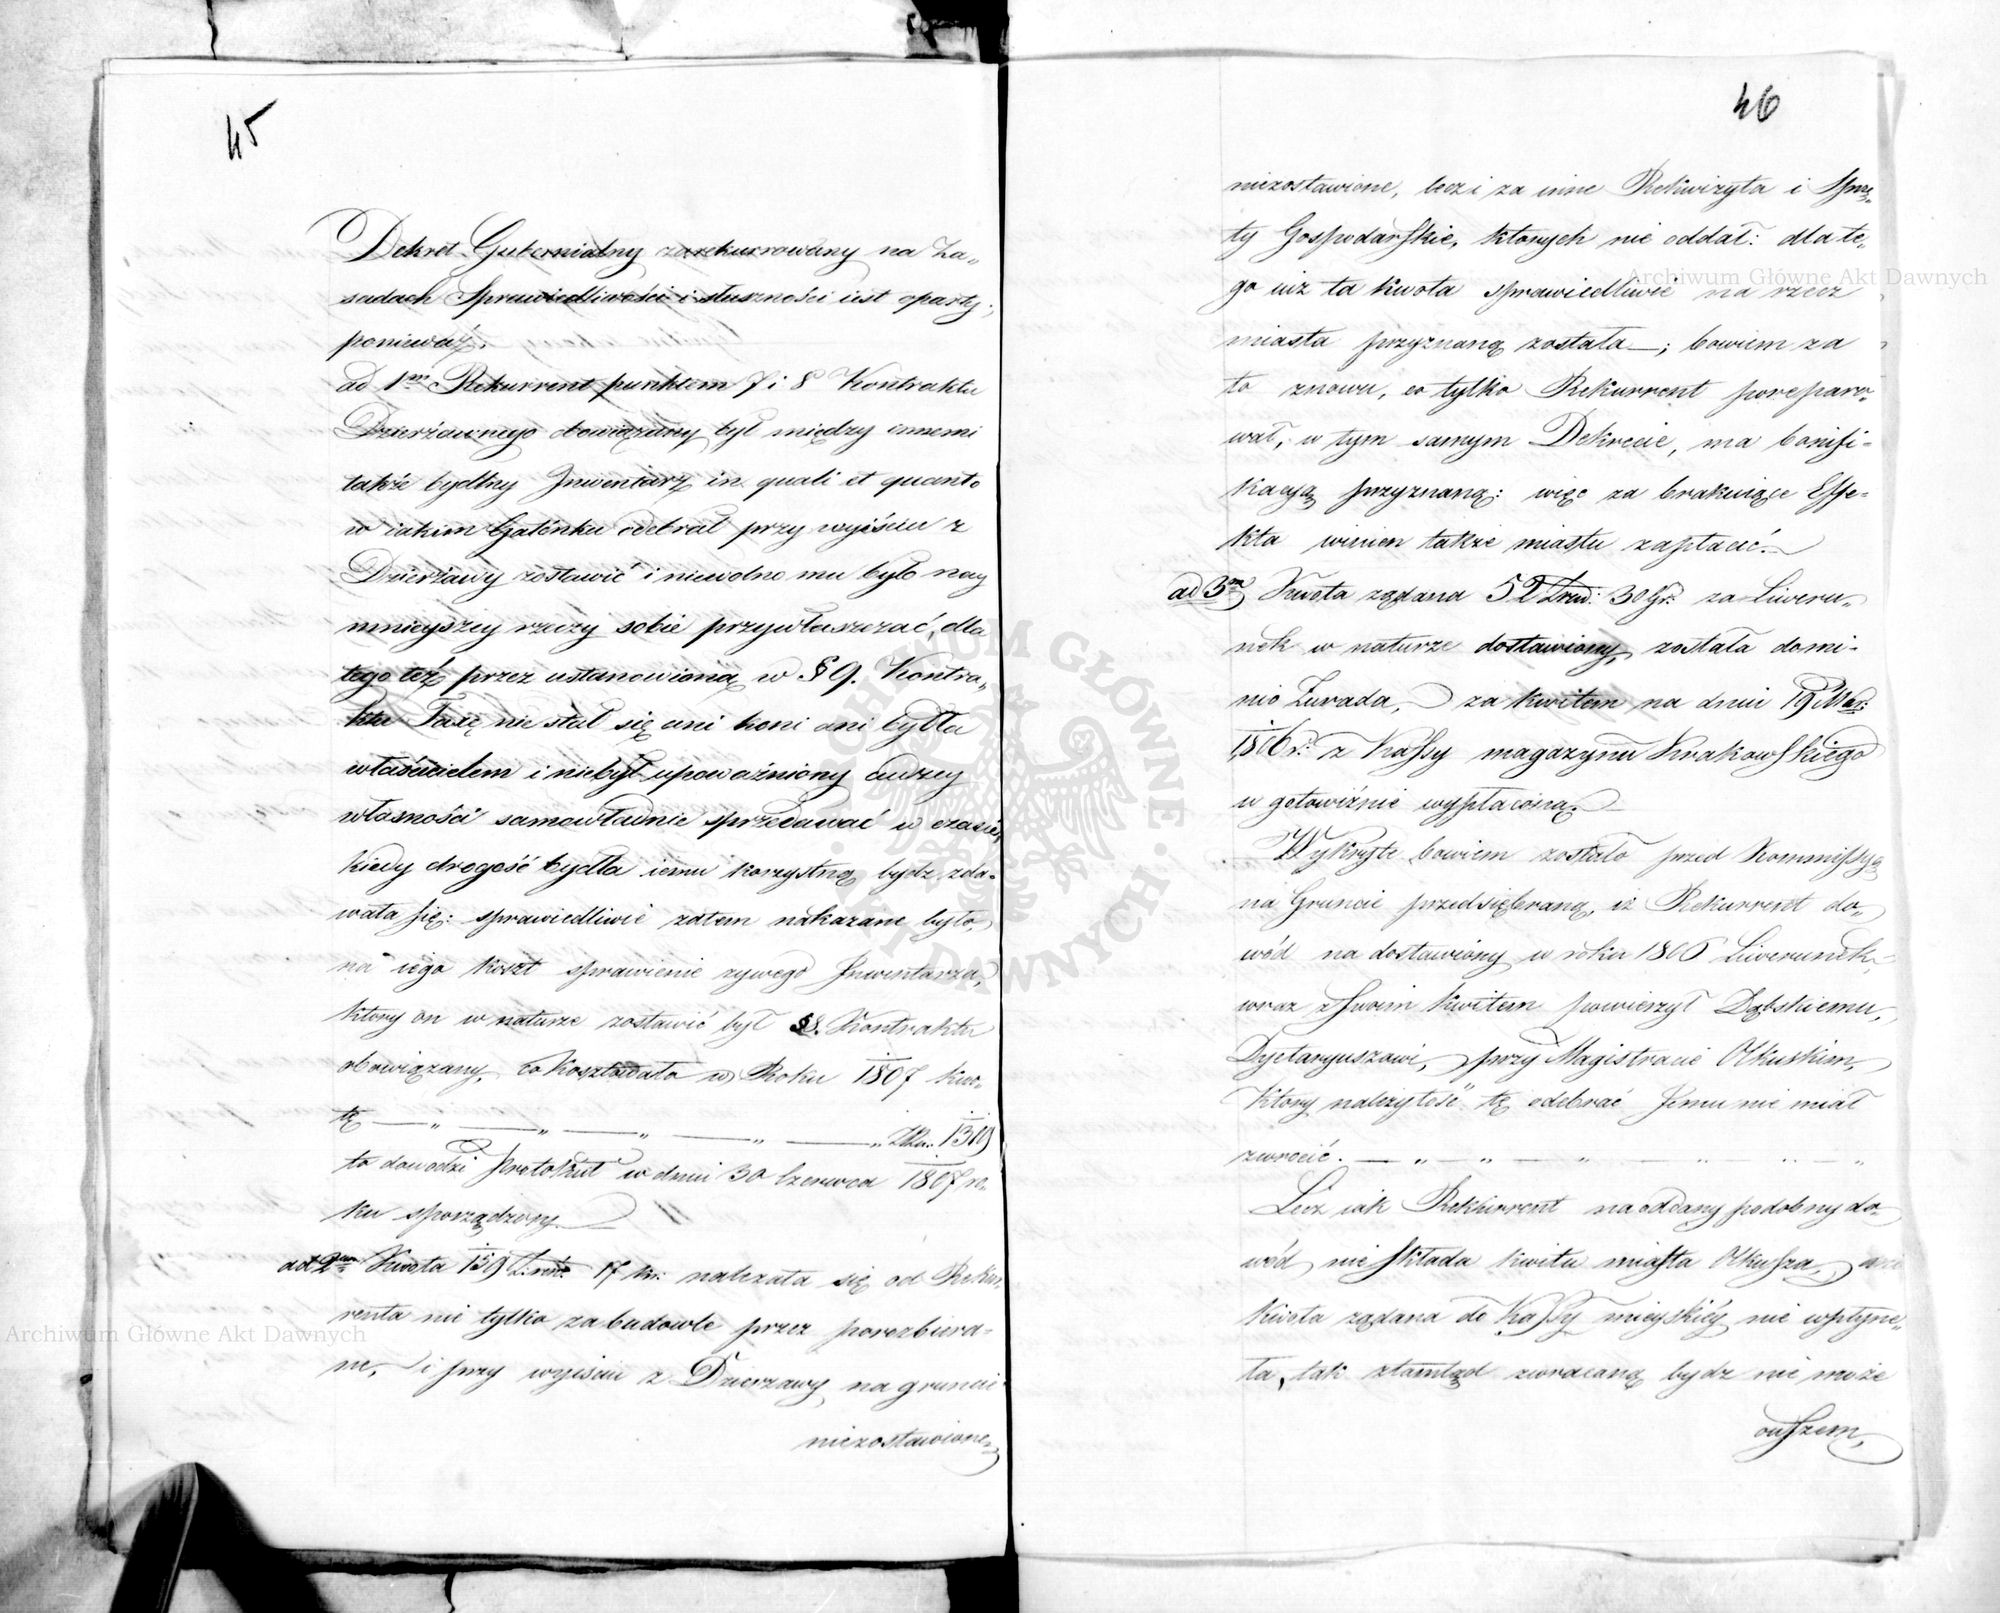 45
Dekret Gubernialny zarekurrowany na Za„
sadach Sprawiedliwości i słuszności iest oparty;
ponieważ.
ad 1m Rekurrent punktem 7 i 8 Kontraktu
Dzierżawnego obowiązany był między innemi
także bydlny Inwentarz in quali et quanto
w iakim Gatunku odebrał przy wyiściu z
Dzierżawy zostawić i niewolno mu było nay
mnieyszey rzeczy sobie przywłaszczać, dla
tego też przez ustanowioną w § 9. Kontra„
ktu Taxę nie stał się ani koni ani bydła
właścicielem i niebył upoważniony cudzey
własności samowładnie sprzedawać w czasie,
kiedy drogość bydła iemu korzystną bydz zda„
wała się: sprawiedliwie zatem nakazane było,
na iego koszt sprawienie żywego Inwentarza,
ktory on w naturze zostawić był §8. Kontraktu
obowiązany, co kosztowało w Roku 1807 kwo„
tę — „ — „ — „ — „ — „ 1319
to dowodzi Protokuł w dniu 30 Czerwca 1807 ro„
ku sporządzony
ad 2um Kwota 159 Z. reń: 17 kr: należała się od Rekur„
renta nie tylko za budowle przez porozbiera„
ne, i przy wyiściu z Dzierzawy na gruncie
niezostawione,
46
niezostawione, lecz i za inne Rekwizyta i Sprzę„
ty Gospodarskie, ktorych nie oddał: dla te„
go iuż ta kwota sprawiedliwie na rzecz
miasta przyznaną została —; bowiem za
to znowu, co tylko Rekurrent poreparo„
wał, w tym samym Dekrecie, ma bonifi„
kacyą przyznaną: więc za brakuiące Effe„
kta winien także miastu zapłacić.
ad 3m Kwota żądana 52 30 za Liweru„
nek w naturze dostawiony, została domi„
nio Zurada, za kwitem na dniu 19 Mar:
1806 r: z Kassy magazynu Krakowskiego
w gotowiźnie wypłaconą.
Wykryte bowiem zostało przed Kommissyą
na Gruncie przedsiębraną, iż Rekurrent do„
wód na dostawiony w roku 1806 Liwerunek,
wraz z Swoim kwitem powierzył Dąbskiemu,
Dyetaryuszowi, przy Magistracie Olkuskim,
ktory należytość tę odebrać Jemu nie miał
zwrócić. — „ — „ — „ — „ — „
Lecz iak Rekurrent na oddany podobny do„
wód nie składa kwitu miasta Olkusza, ani
kwota żądana do Kassy mieyskiéy nie wpłynę„
ła, tak ztamtąd zwracaną bydz nie może
owszem,
Archiwum Główne Akt Dawnych
Archiwum Główne Akt Dawnych
ARCHIWUM GŁÓWNE · AKT DAWNYCH ·